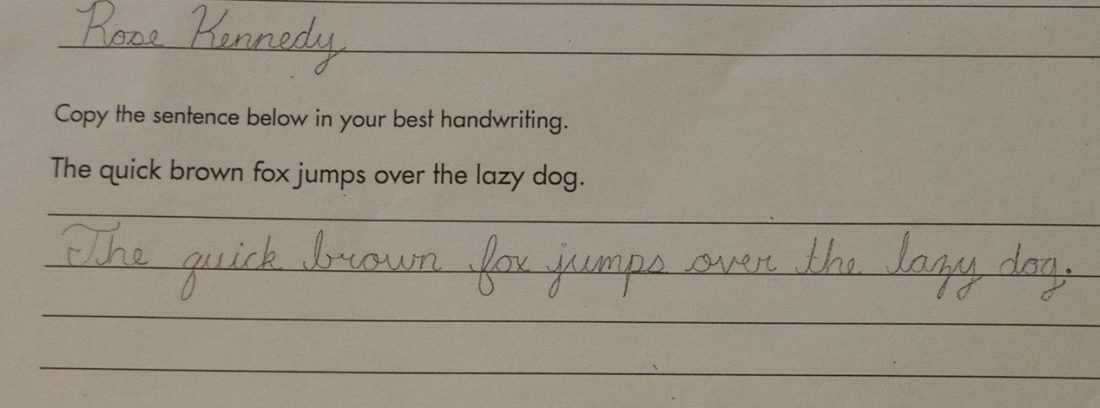 Rose Kennedy
Copy the sentence below in your best handwriting.
The quick brown fox jumps over the lazy dog.
The quick brown fox jumps over the lazy dog.